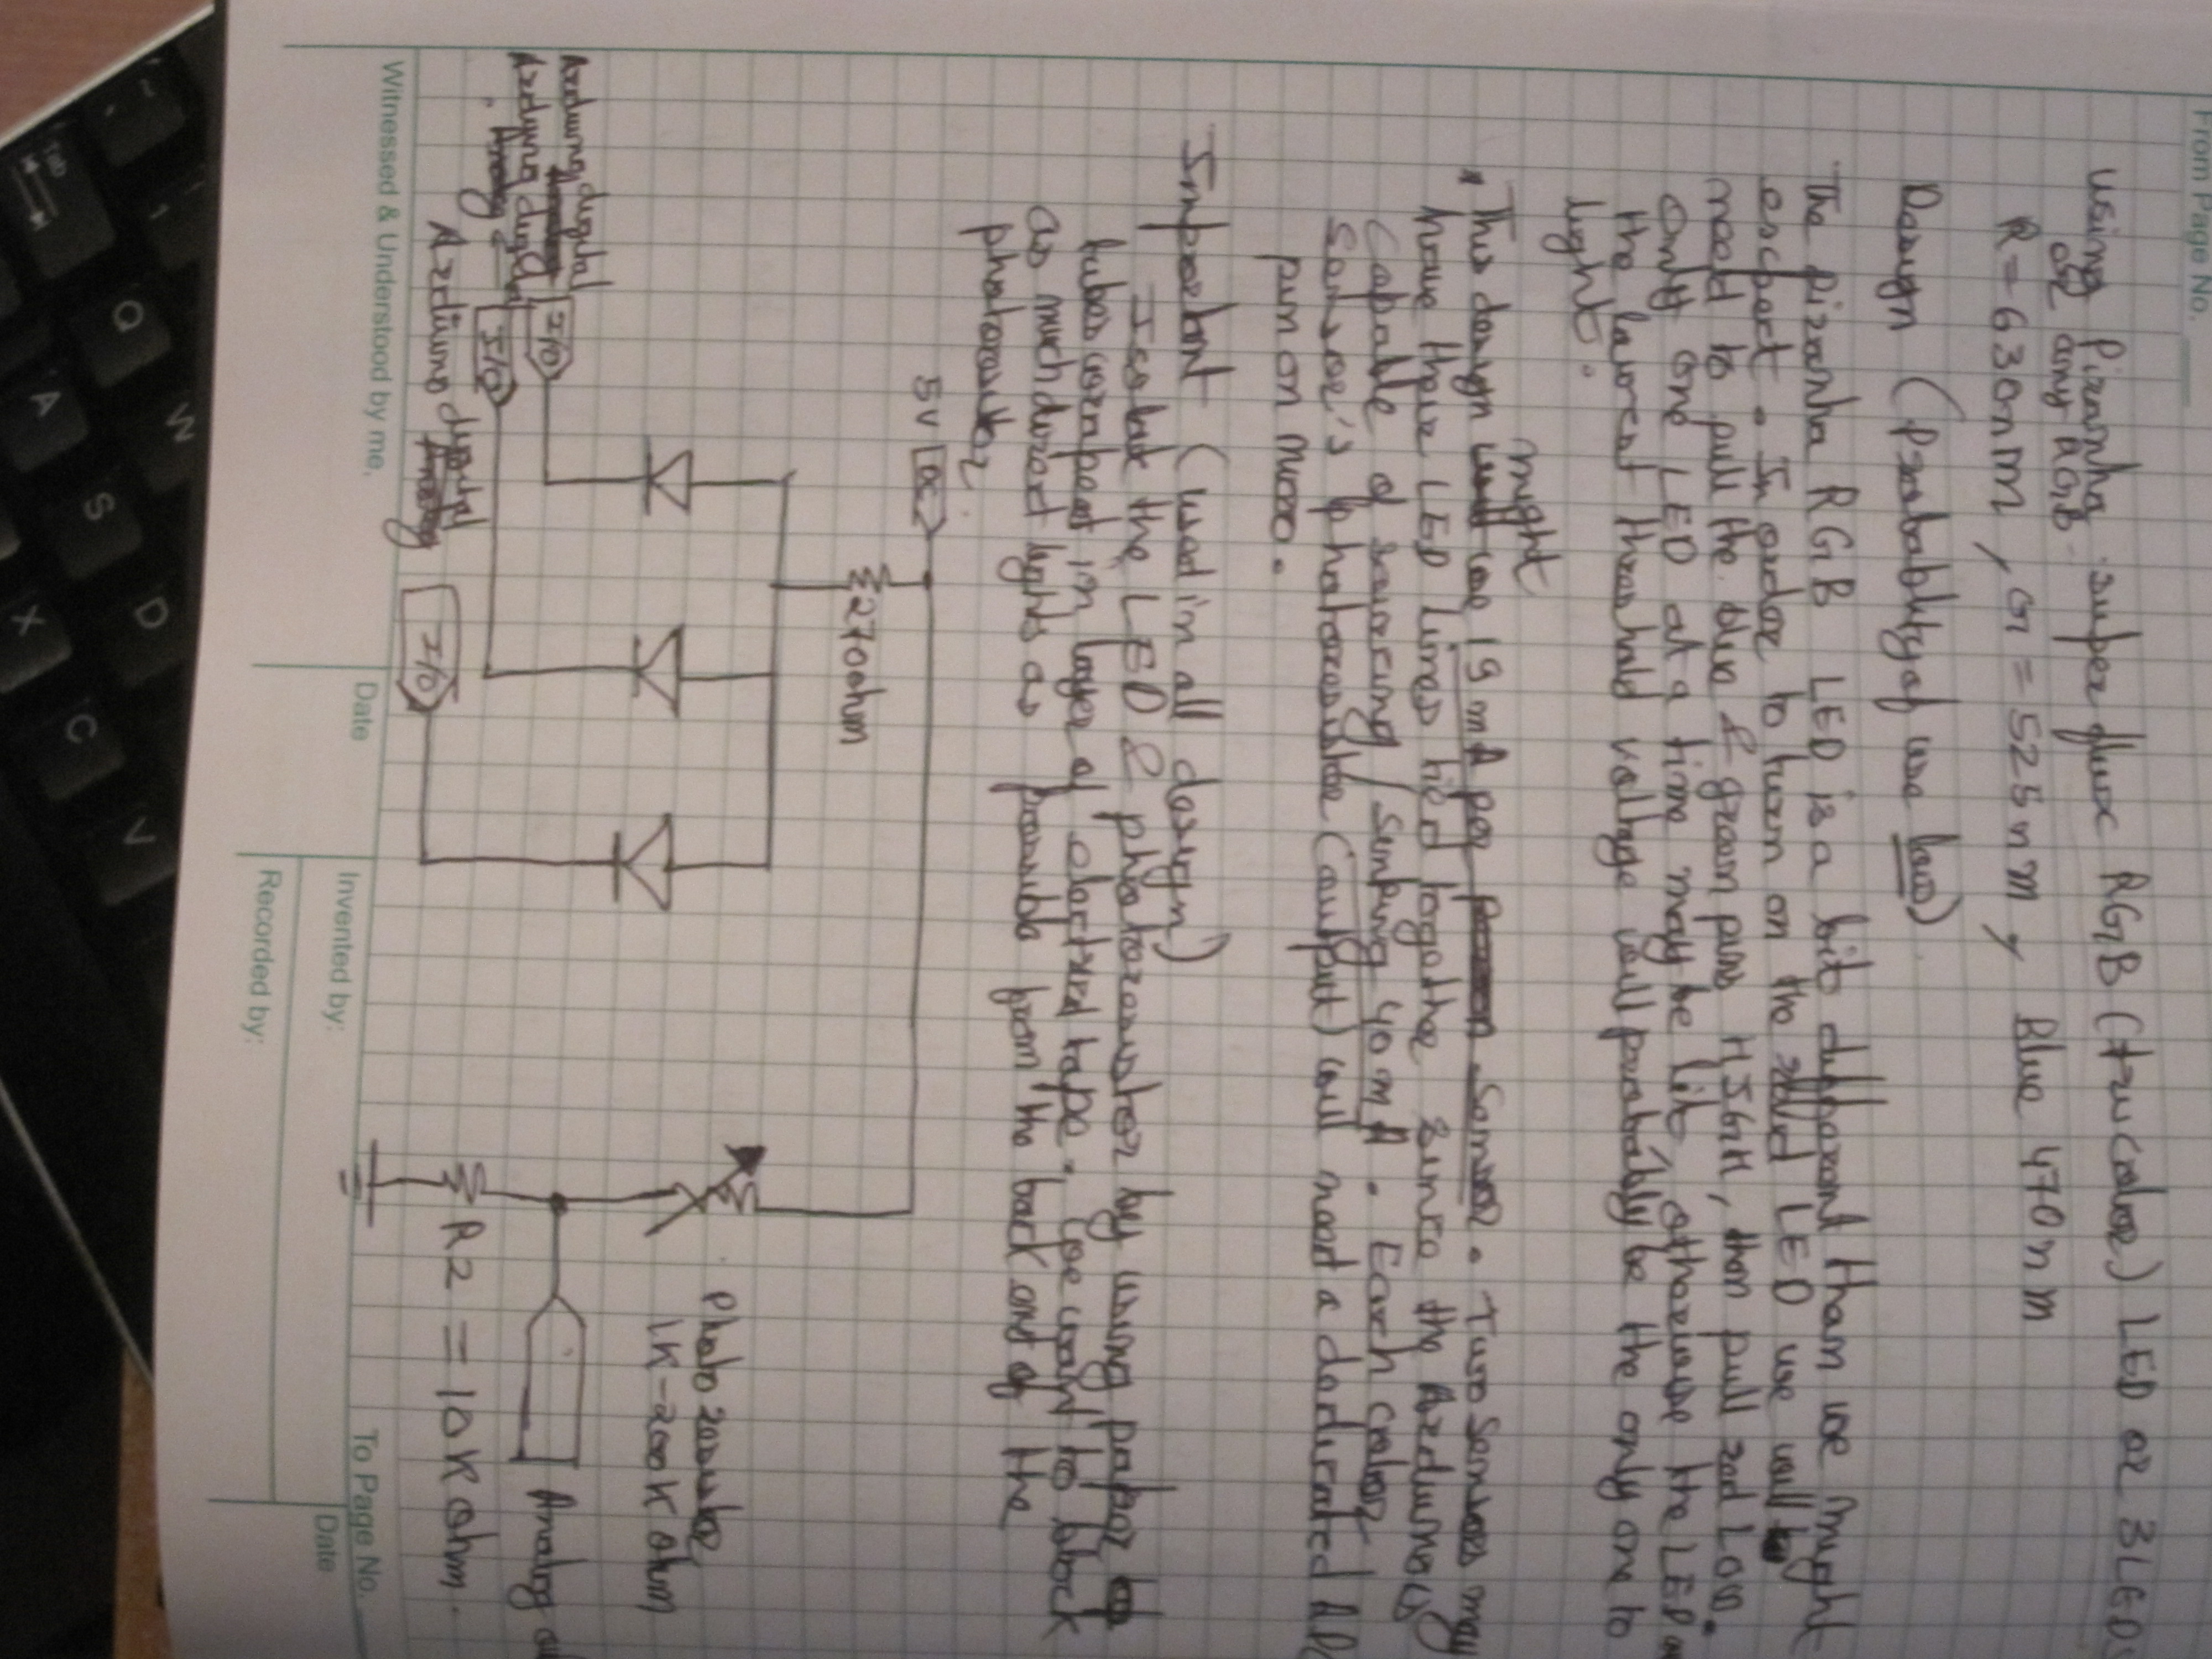 From Page No.
using Piranha super flux RGB (tricolor) LED or 3 LEDs
or any RGB
R = 630nm, G = 525nm, Blue 470nm
Design (Probability of use low)
The piranha RGB LED is a bit different than we might
expect. In order to turn on the red LED we will
need to pull the blue & green pins HIGH, then pull red LOW.
Only one LED at a time may be lit, otherwise the LED
the lowest threshold voltage will probably be the only one to
light.
might
This design use 19mA per sensor. Two sensors may
have their LED lines tied together since the Arduino is
capable of sourcing/sinking 40mA. Each color
sensor's photoresistor (output) will need a dedicated ADC
pin on micro.
Important (used in all design)
Isolate the LED & photoresistor by using paper
tubes wrapped in layer of electrical tape. We want to block
as much direct lights as possible from the back and of the
photoresistor
5V DC
270ohm
Photoresistor
1K-200K Ohm
Analog
R2 = 10K Ohm
Arduino digital I/O
Arduino digital Analog I/O
Arduino digital Analog I/O
Witnessed & Understood by me,
Date
Invented by:
Recorded by:
Date
To Page No.
Q
W
A
S
D
X
C
V